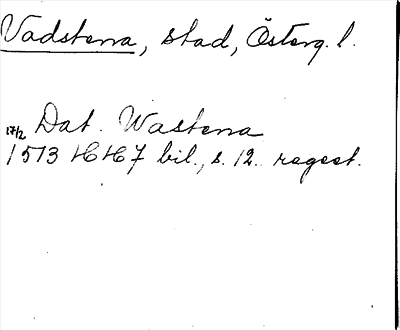 Vadstena, stad, Österg. l.
17/2 Dat. Wastena
1573 HH 7 bil., s. 12. regest.